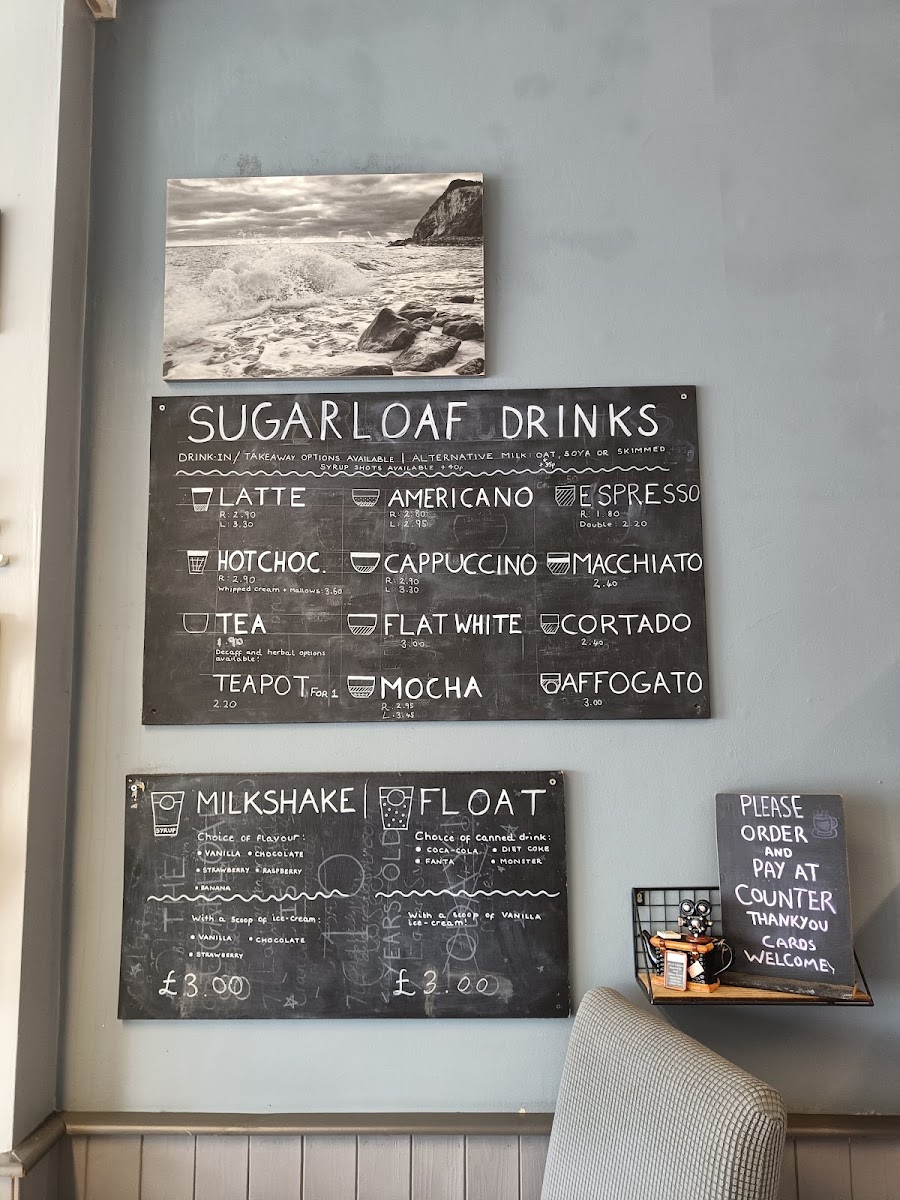 SUGARLOAF DRINKS
DRINK-IN/TAKEAWAY OPTIONS AVAILABLE | ALTERNATIVE MILK: OAT, SOYA OR SKIMMED
+35p
SYRUP SHOTS AVAILABLE +40p
LATTE
R: 2.90
L: 3.30
AMERICANO
R: 2.80
L: 2.95
ESPRESSO
R: 1.80
Double: 2.20
HOTCHOC.
R: 2.90
Whipped cream + Mallows: 3.60
CAPPUCCINO
R: 2.90
L 3.30
MACCHIATO
2.40
TEA
1.90
Decaff and herbal options
available!
FLAT WHITE
3.00
CORTADO
2.40
TEAPOT FOR 1
2.20
MOCHA
R: 2.95
L: 3.45
AFFOGATO
3.00
MILKSHAKE | FLOAT
SYRUP
Choice of flavour:
• VANILLA • CHOCOLATE
• STRAWBERRY • RASPBERRY
• BANANA
With a scoop of ice-cream:
• VANILLA • CHOCOLATE
• STRAWBERRY
£3.00
Choice of canned drink:
• COCA-COLA • DIET COKE
• FANTA • MONSTER
With a scoop of VANILLA
ice-cream!
£3.00
PLEASE
ORDER
AND
PAY AT
COUNTER
THANKYOU
CARDS
WELCOME